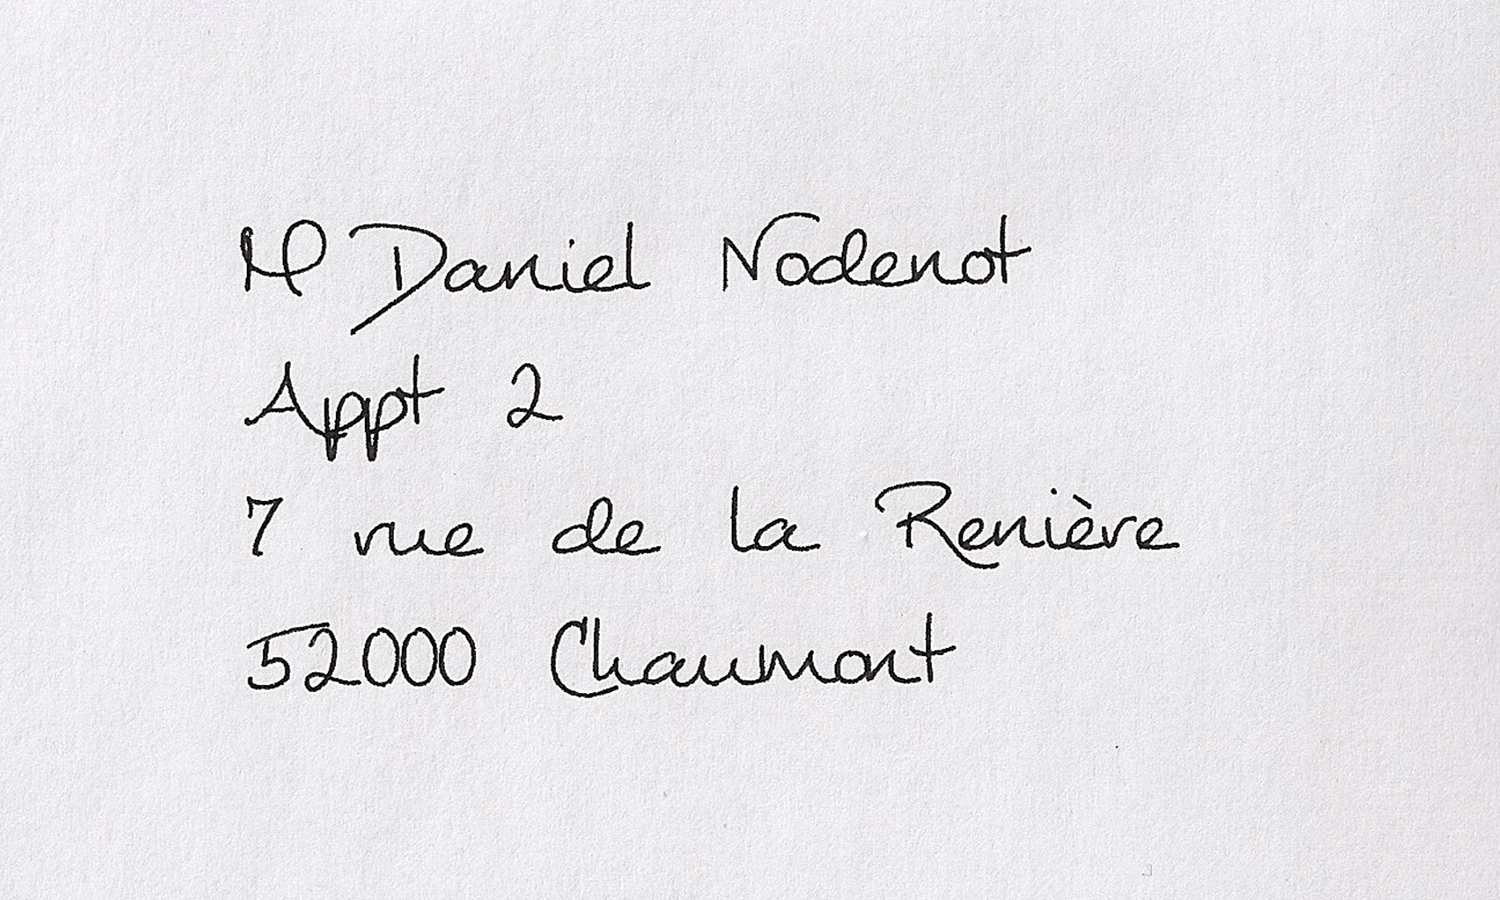 M Daniel Nodenot
Appt 2
7 rue de la Renière
52000 Chaumont